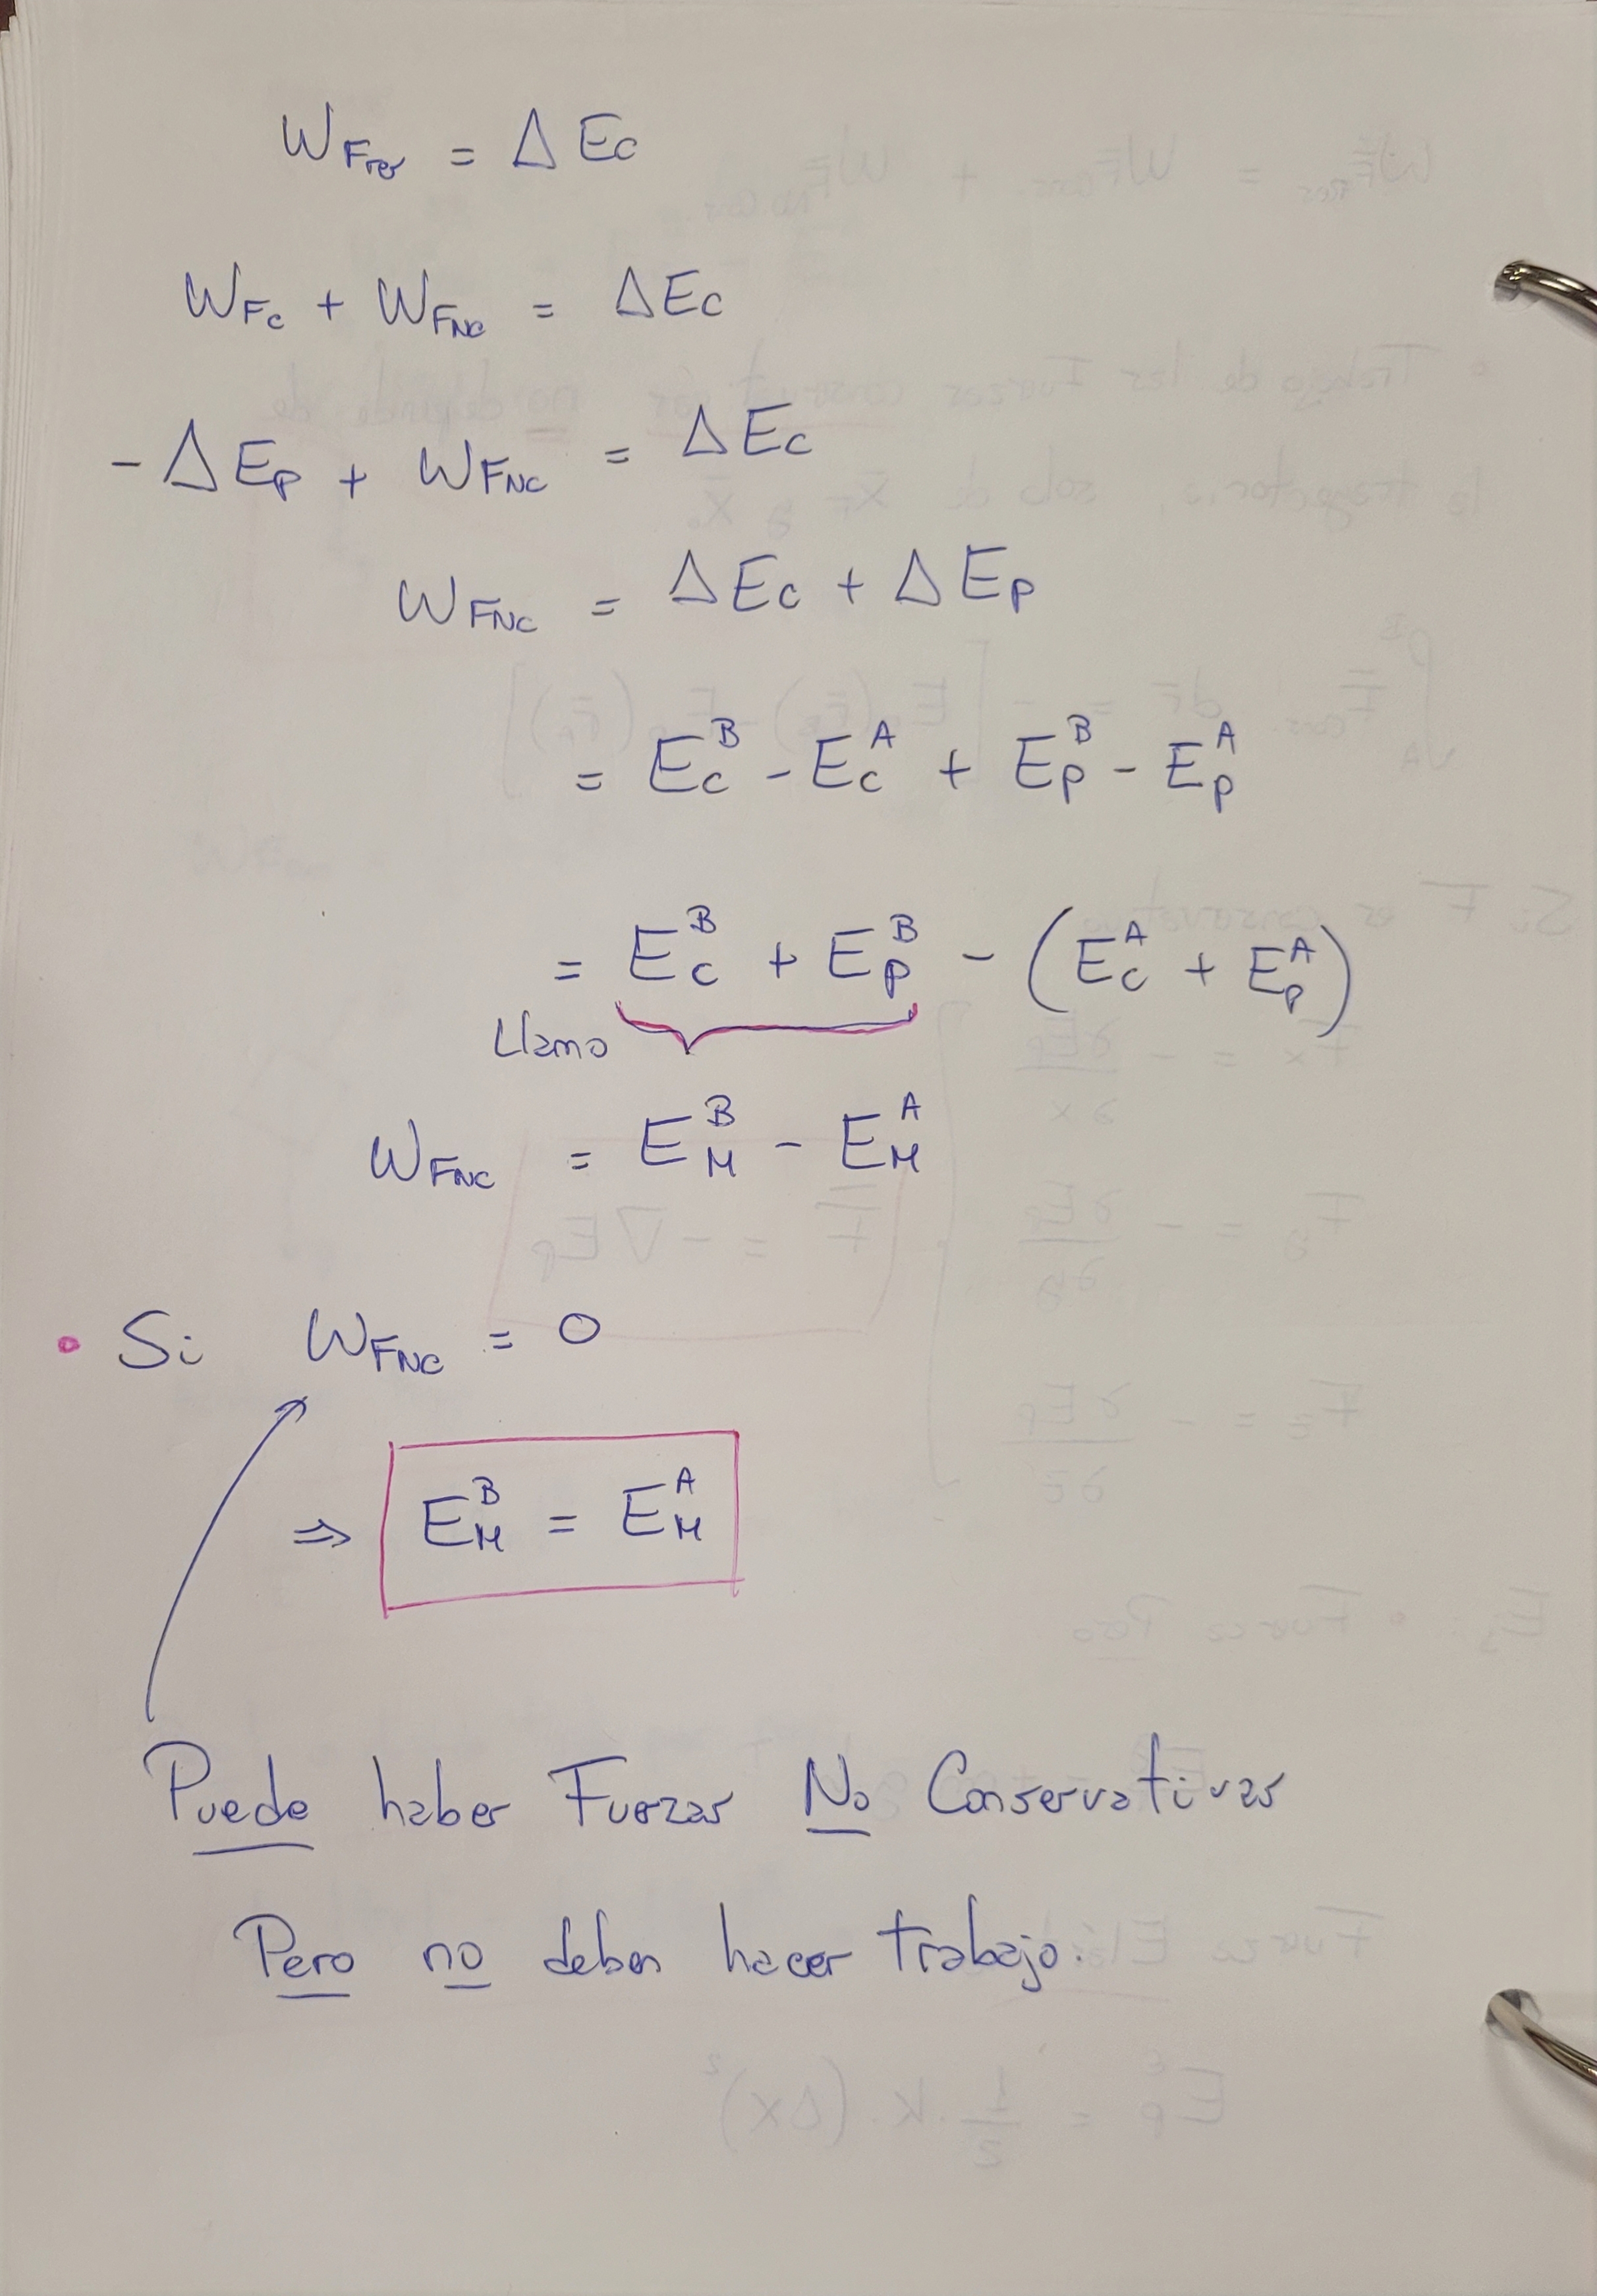 W_Fres = Δ Ec
W_Fc + W_FNC = ΔEc
- Δ Ep + W_FNC = ΔEc
W_FNC = ΔEc + ΔEp
= Ec^B - Ec^A + Ep^B - Ep^A
= Ec^B + Ep^B - (Ec^A + Ep^A)
Llamo
W_FNC = E_M^B - E_M^A
• Si W_FNC = 0
⇒ E_M^B = E_M^A
Puede haber Fuerzas No Conservativas
Pero no deben hacer trabajo.